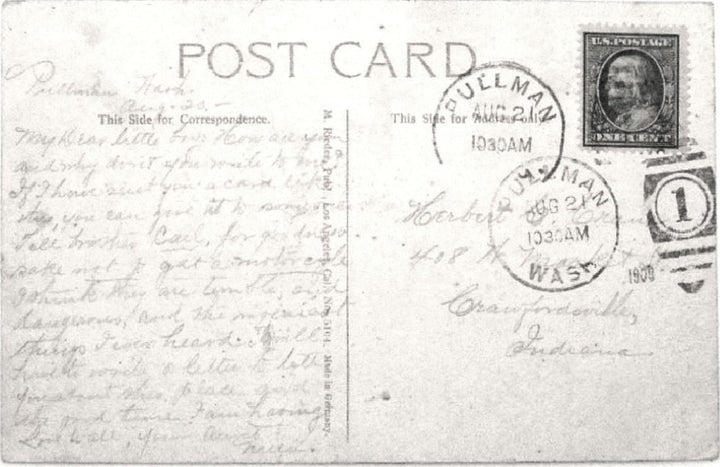 POST CARD
U.S. POSTAGE
ONE CENT
Pullman Wash.
Aug. 20.-
This Side for Correspondence.
This Side for Address only.
PULLMAN
AUG 21
1030AM
PULLMAN
AUG 21
1030AM
WASH.
1
1909
My Dear little How are you
and why don't you write to me?
If I have sent you a card like
this, you can give it to someone
Tell brother Carl, for goodness
sake not to get a motorcycle
I think they are terrible, and
dangerous, and the noisiest
things I ever heard. I will
write a letter to tell
you about this place and
the good time I am having
Love to all, your Aunt
M. Rieder, Publ., Los Angeles, Cal. No. Made in Germany.
Herbert
408 W.
Crawfordsville,
Indiana